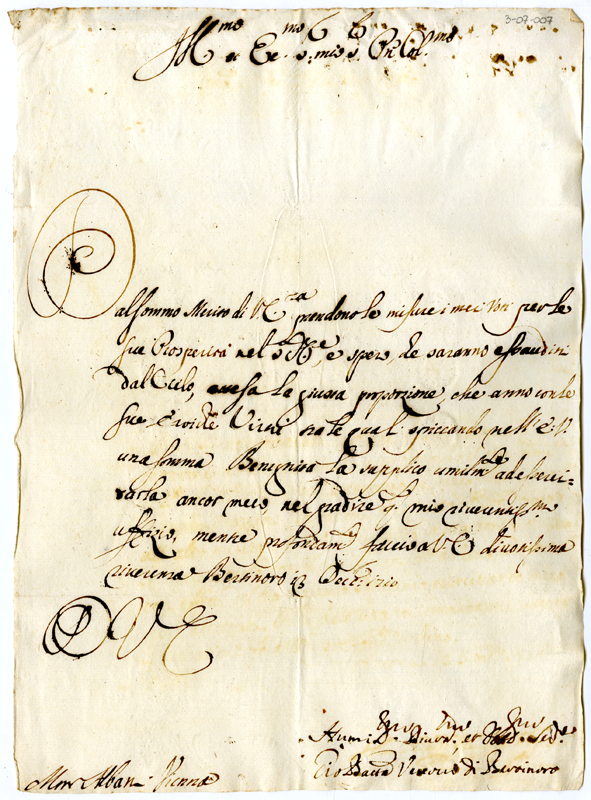 3-07-007
Ill.mo et Ecc.mo S. mio S. P.ron Col.mo
Dal sommo Merito di V.E.za prendono le misure i miei Voti per le
sue Prosperità nel S. Nle, e spero, che saranno esauditi
dal Cielo, attesa la giusta proporzione, che anno con le
sue Eroiche Virtù, tra le quali spiccando nell' E.V.
una somma Benignità la supplico umilm.te ad eserci-
tarla ancor meco nel gradire q.o mio riverentiss.mo
uffizio, mentre profondam.e faccio a V.E. divotissima
riverenza Bertinoro 13 Decbre
D V E
Humil.mo Divot.mo, et Obl.mo Ser.e
Gio Batta Vescovo di Bertinoro
Mons Alban. Vienna